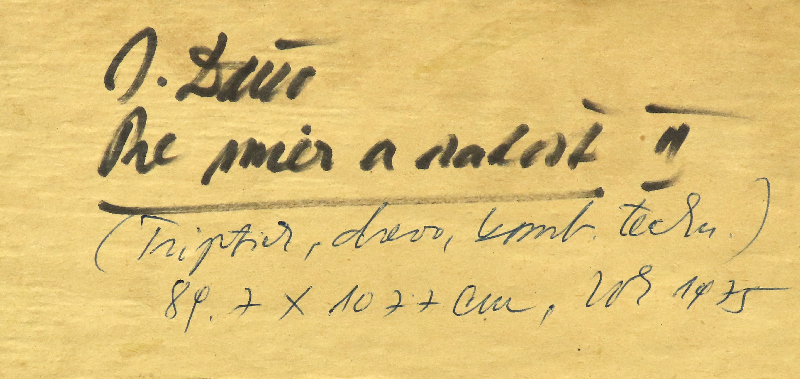 J.
Pre mier a radosť II
(Triptich, drevo, komb. techn.)
89.7 x 1077 cm, rok 1975